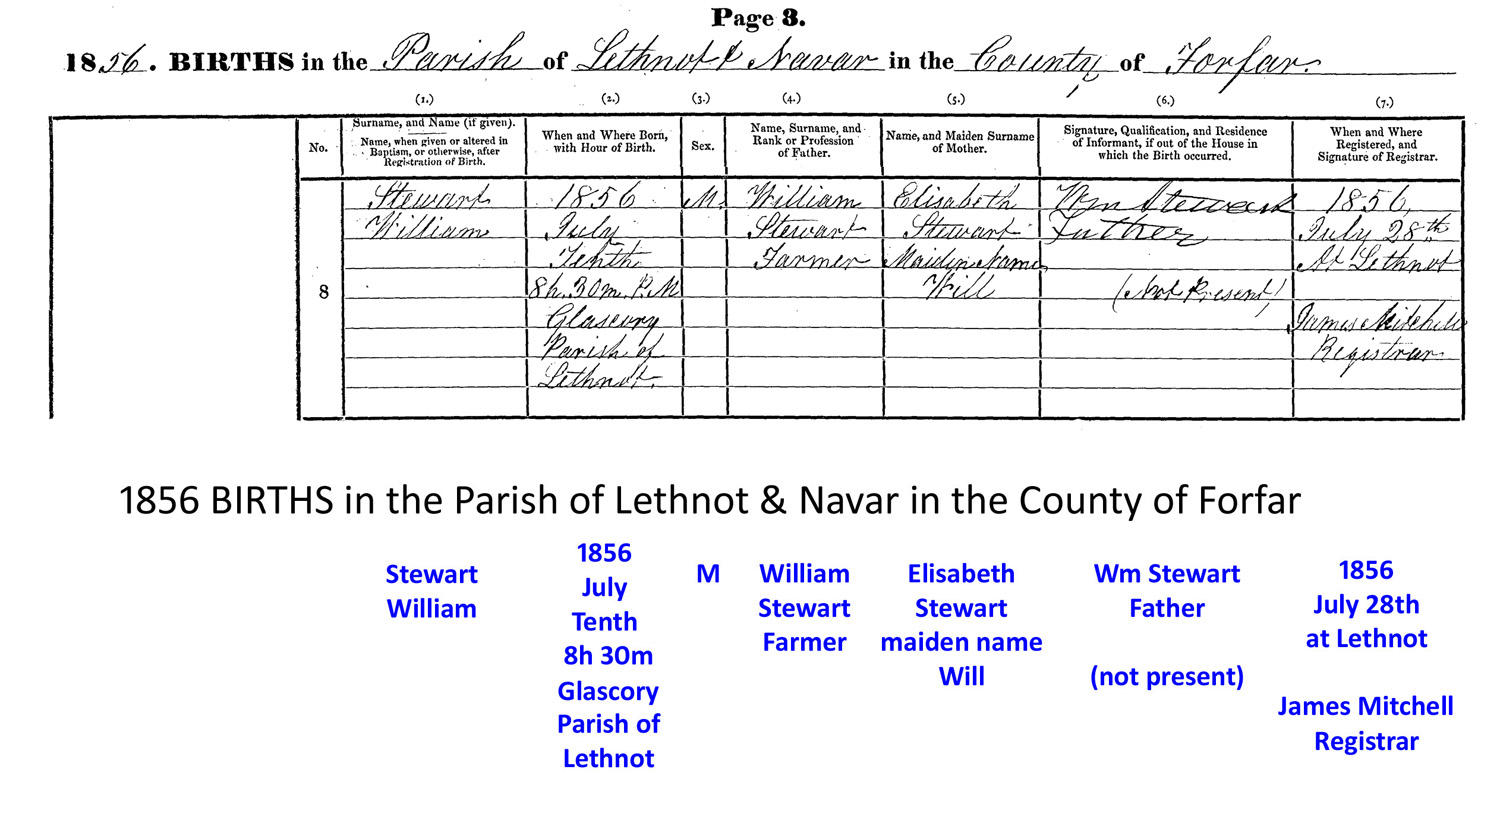 Page 3.
1856. BIRTHS in the Parish of Lethnot & Navar in the County of Forfar.
(1.) (2.) (3.) (4.) (5.) (6.) (7.)
No.
Surname, and Name (if given).
Name, when given or altered in
Baptism, or otherwise, after
Registration of Birth.
When and Where Born,
with Hour of Birth.
Sex.
Name, Surname, and
Rank or Profession
of Father.
Name, and Maiden Surname
of Mother.
Signature, Qualification, and Residence
of Informant, if out of the House in
which the Birth occurred.
When and Where
Registered, and
Signature of Registrar.
8
Stewart
William
1856
July
Tenth
8h. 30m. P.M
Glascory
Parish of
Lethnot.
M.
William
Stewart
Farmer
Elisabeth
Stewart
Maiden Name
Will
Wm Stewart
Father
(Not Present)
1856,
July 28th
At Lethnot
James Mitchell
Registrar.
1856 BIRTHS in the Parish of Lethnot & Navar in the County of Forfar
Stewart
William
1856
July
Tenth
8h 30m
Glascory
Parish of
Lethnot
M
William
Stewart
Farmer
Elisabeth
Stewart
maiden name
Will
Wm Stewart
Father
(not present)
1856
July 28th
at Lethnot
James Mitchell
Registrar